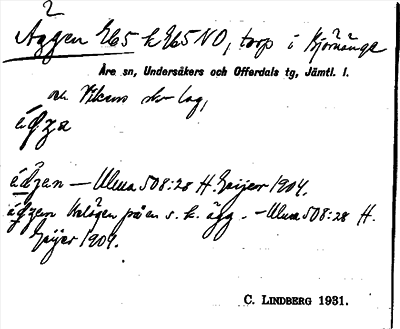 Äggen 265 k 265 NO, torp i Björnänge
Åre sn, Undersåkers och Offerdals tg, Jämtl. l.
och Vikens skr lag,
ädzen — Ulma 508:28 H. Geijer 1904.
på en s. k. ägg. – Ulma 508:28 H.
Geijer 1904.
C. LINDBERG 1931.